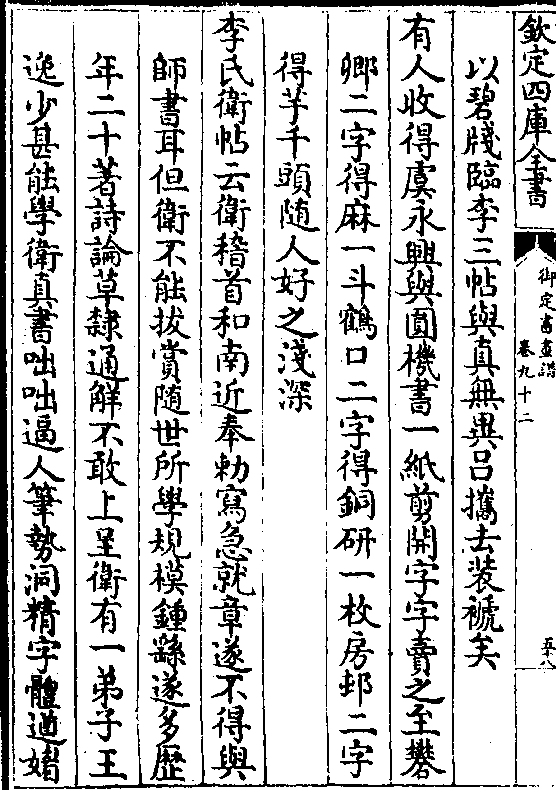 欽定四庫全書
御定書畫譜
卷九十二
五十八
以碧牋臨李三帖與真無異吕攜去装褫矣
有人收得虞永興與圓機書一紙剪開字字賣之至礬
卿二字得麻一斗鶴口二字得銅研一枚房邨二字
得芋千頭随人好之淺深
李氏衛帖云衛稽首和南近奉勅寫急就章遂不得與
師書耳但衛不能拔賞隨世所學規模鍾繇遂多歷
年二十著詩論草隸通解不敢上呈衛有一弟子王
逸少甚能學衛真書咄咄逼人筆勢洞精字體遒媚